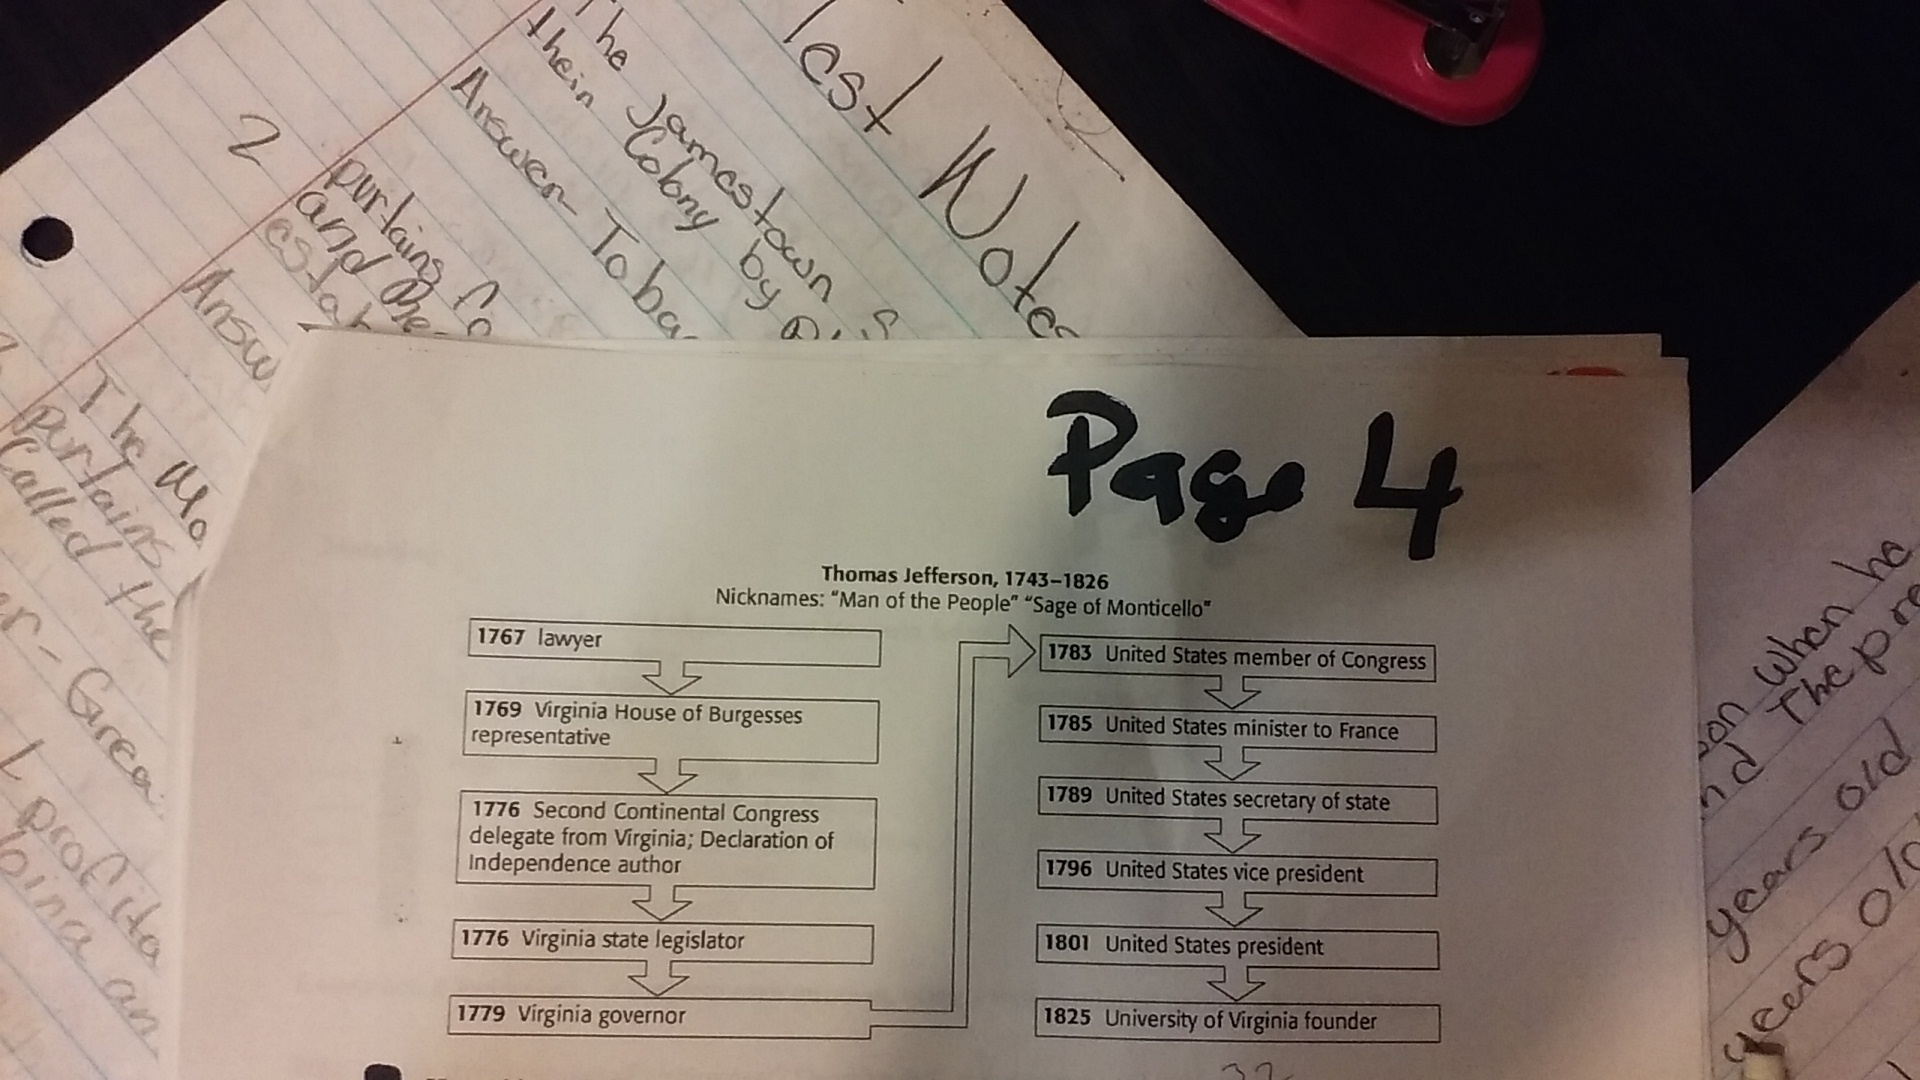 Test Notes
The Jamestown
their Colony by
Answer Toba
2 purtains
and the
estab
Answ
The
purtains
Called the
er - Grea
profita
an
Page 4
Thomas Jefferson, 1743–1826
Nicknames: "Man of the People" "Sage of Monticello"
1767 lawyer
1769 Virginia House of Burgesses
representative
1776 Second Continental Congress
delegate from Virginia; Declaration of
Independence author
1776 Virginia state legislator
1779 Virginia governor
1783 United States member of Congress
1785 United States minister to France
1789 United States secretary of state
1796 United States vice president
1801 United States president
1825 University of Virginia founder
on When he
nd The pre
years old
years old